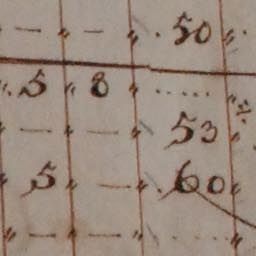 — „ — „ . 50 „ .
„ 5 „ 8 „ ..... „
„ — „ — „ 53 „
„ 5 „ — „ . 60 „
„ — „ — „ ..... „